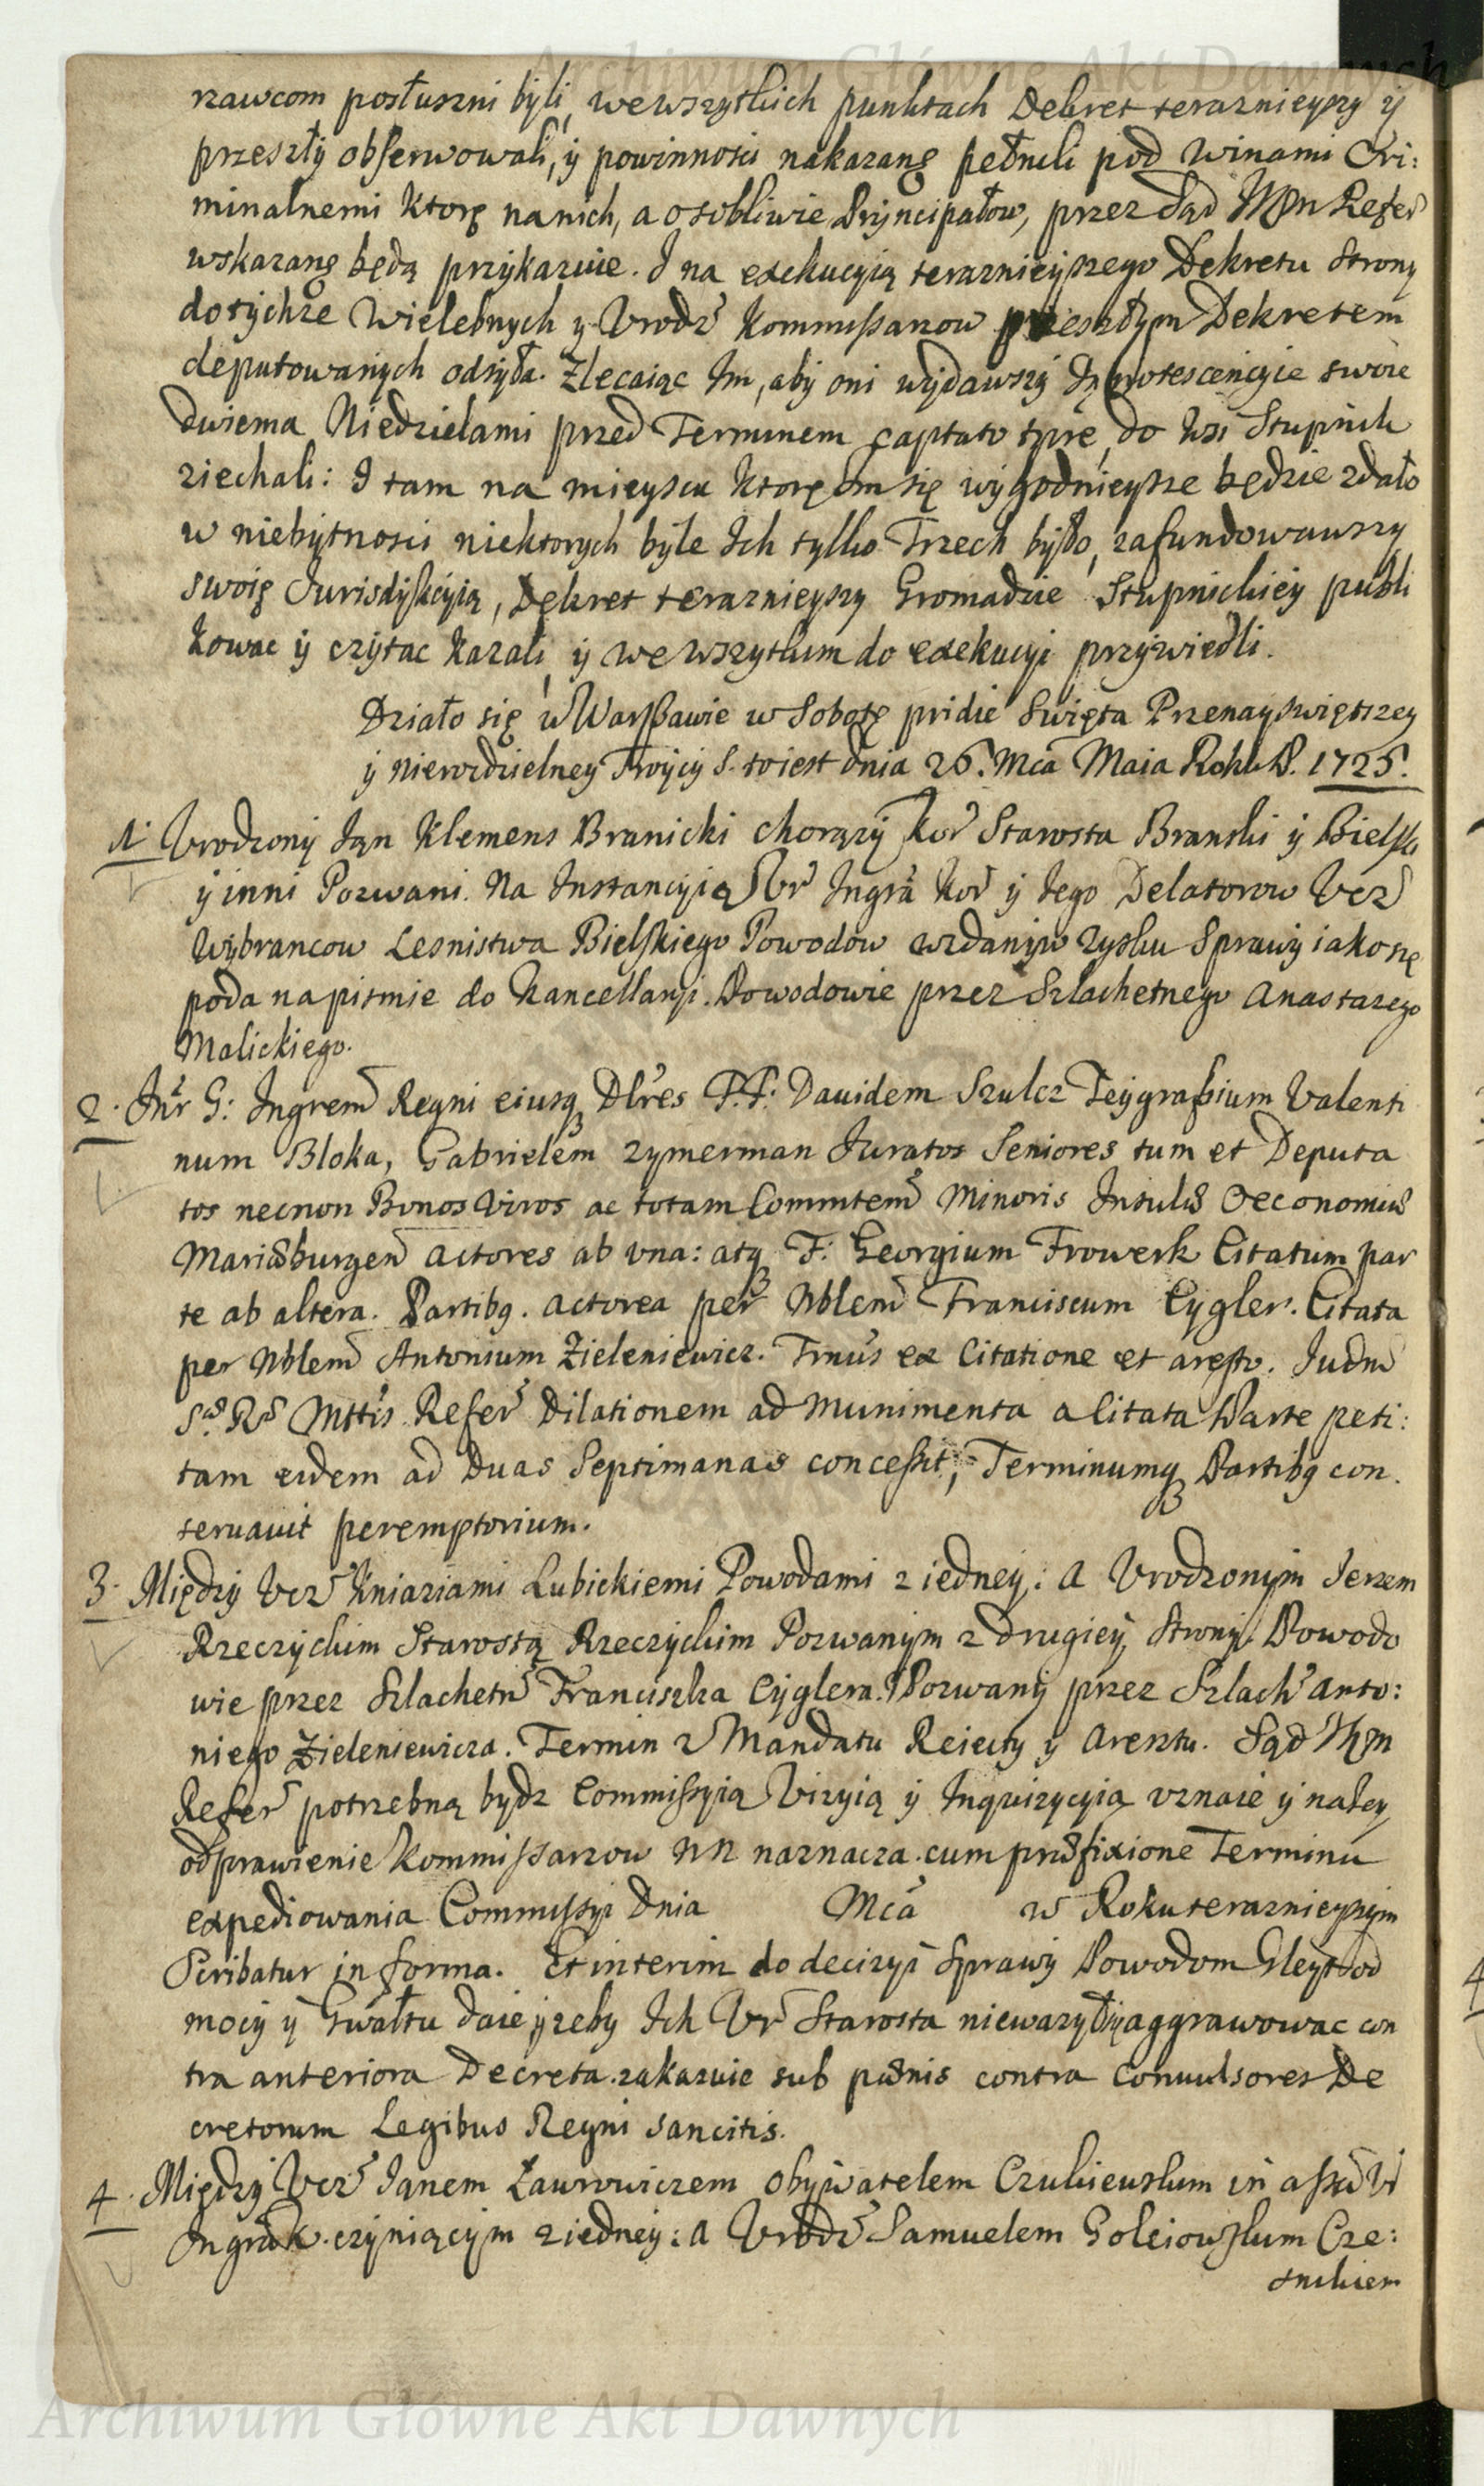 Archiwum Główne Akt Dawnych
rzawcom posłuszni byli, wewszytkich punktach Dekret teraznieyszy ÿ
przeszłÿ obserwowali, ÿ powinnosci nakazanę pełnili pod winami Cri:
minalnemi Ktorę nanich, a osobliwie Pryncipałow, przez Sąd JKM Refer
wskazanę będą przÿkazuie. I na exekucyią teraznieÿszego Dekretu Strony
dotÿchze Wielebnych y Vrodz Kommissarzow przeszłym Dekretem
deputowanÿch odsÿła. Zlecaiąc Im, abÿ oni wÿdawszÿ Innotescencÿie swoie
dwiema Niedzielami przed Terminem captato tpre, do Wsi Stupnik
ziechali: I tam na mieyscu Ktorę im się wÿgodnieysze będzie zdało
w niebÿtnosci niektorych bÿle Ich tylko Trzech bÿło, zafundowawszy
swoię Jurisdÿkcÿią, Dekret teraznieyszy Gromadzie Stupnickieÿ publi
kowac ÿ czÿtac kazali, ÿ wewszytkim do exekucyi przÿwiedli.
Działo się w Warszawie w Sobotę pridie Swięta Przenayswiętszey
ÿ nierozdzielney Troÿcÿ S. toiest dnia 26. Mca Maia Roku P. 1725.
1. Vrodzonÿ Jan Klemens Branicki chorązÿ Kor Starosta Branski ÿ Bielski
ÿ inni Pozwani. Na Instancyią Vr Ingra Kor ÿ Jego Delatorow Vcz
Wÿbrancow Lesnistwa Bielskiego Powodow wzdanÿw zysku Sprawÿ iako się
poda na pismie do Kancellarÿi. Powodowie przez Szlachetnego Anastazego
Malickiego.
2. Intr G: Ingrem Regni eiusq Dlres F.F: Dauidem Szulcz Teÿgrabium Valenti
num Bloka, Gabrielem Zymerman Juratos Seniores tum et Deputa
tos necnon Bonos Viros ac totam Commtem Minoris Insulæ Oeconomiæ
Mariæburgen actores ab vna: atq F: Georgium Frowerk Citatum par
te ab altera. Partibq. actorea per Nblem Franciscum Cygler. Citata
per Nblem Antonium Zieleniewicz. Trnus ex Citatione et aresto. Judm
Sæ Ræ Mttis Refer Dilationem ad Munimenta a Citata Parte peti:
tam eidem ad Duas Septimanas concessit, Terminumq Partibq con
seruauit peremptorium.
3. Międzÿ Vcz Kniaziami Lubickiemi Powodami z iedneÿ: a Vrodzonÿm Jerzem
Rzeczÿckim Starostą Rzeczÿckim Pozwanÿm z drugieÿ Stronÿ. Powodo
wie przez Szlachetn Franciszka Cÿglera. Pozwanÿ przez Szlach Anto:
niego Zieleniewicza. Termin z Mandatu Reiecty ÿ Aresztu. Sąd JKM
Refer potrzebną bydz Commissÿią Vizyią ÿ Inquizycyią vznaie ÿ na Jey
odprawienie Kommissarzow NN naznacza. cum præfixione Terminu
expediowania Commissÿi Dnia Mca w Roku teraznieyszÿm
Scribatur in forma. Et interim do decizyi Sprawÿ Powodom Gleyt od
mocÿ ÿ Gwałtu daie, ÿ zeby Ich Vr Starosta niewazył się aggrawowac con
tra anteriora Decreta. zakazuie sub pœnis contra Conuulsores De
cretorum Legibus Regni sancitis.
4. Międzÿ Vcz Janem Ławrowiczem Obÿwatelem Czukiewskim in assa Vr
Ingra K. czÿniącÿm z iedney: a Vrodz Samuelem Goleiowskim Cze:
snikiem
Archiwum Główne Akt Dawnych